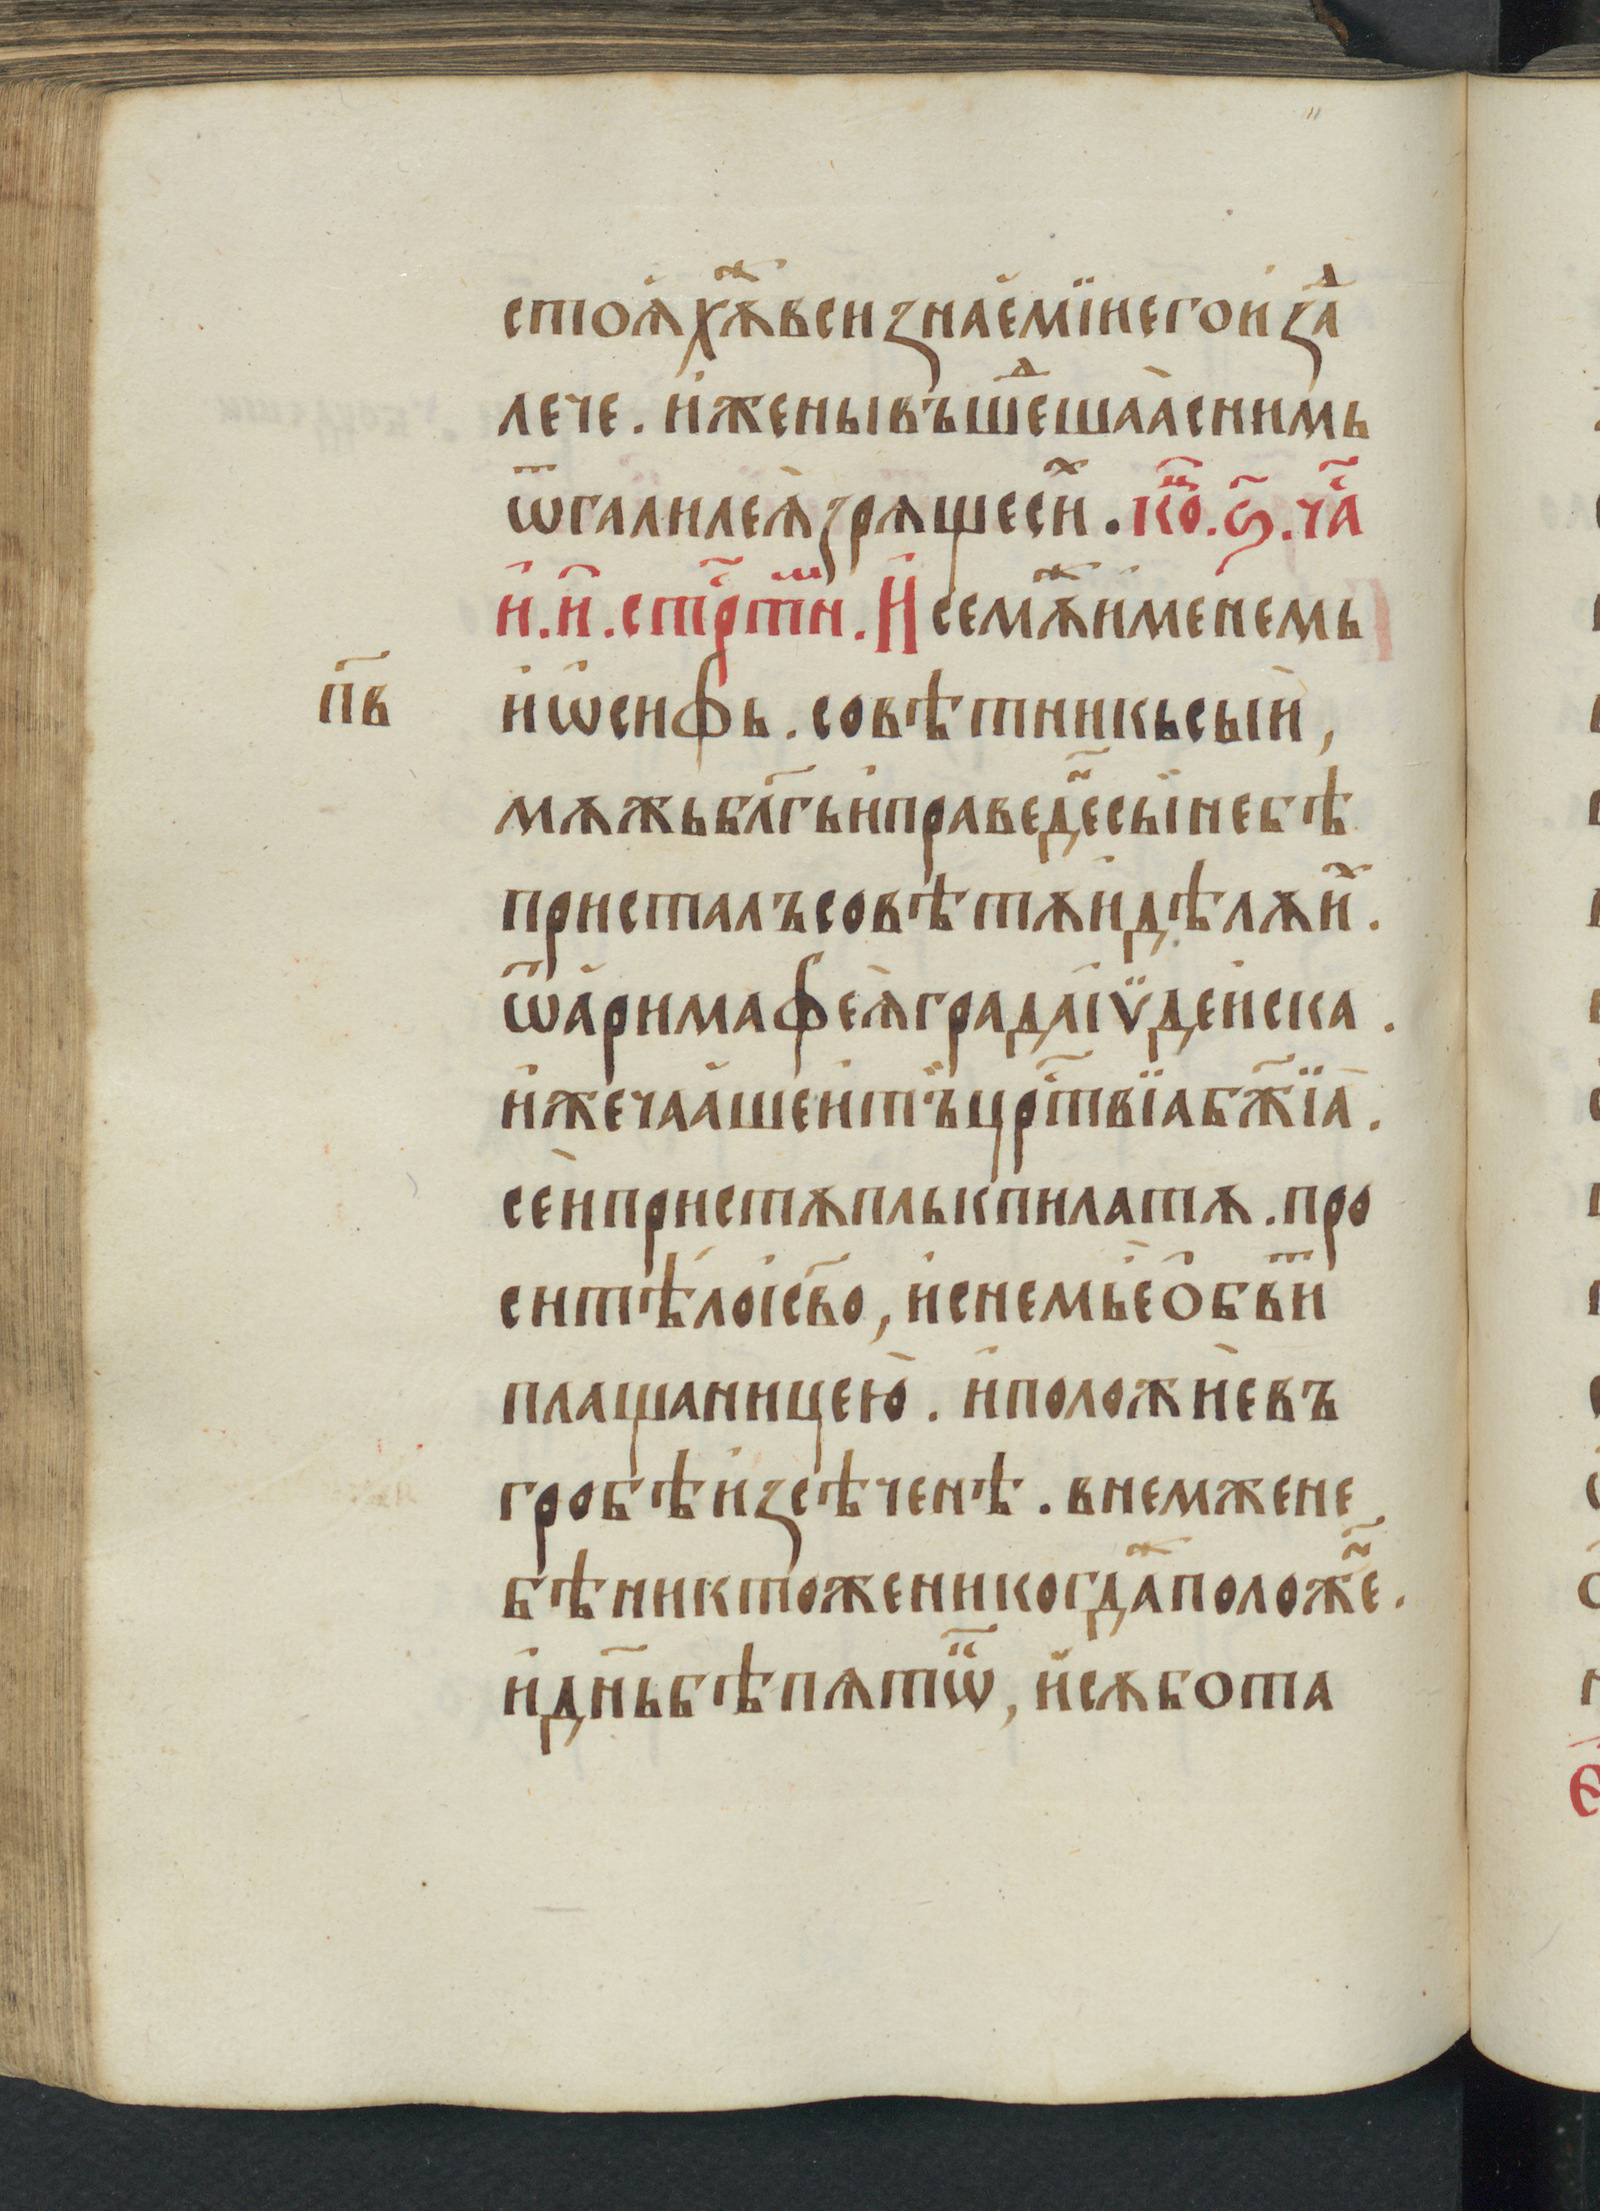 стоѧ́хѫⷤ всѝ знаємїи єго и҆зⷣа
лече. и҆ жены въшеⷣшаѧ с нимь
ѿ галилеѧ зрѧще сиⷯ. кⷪ҇нц. ѕ҃. чⷭ҇а
и҆. и҃. стрⷭ҇тⷨи. И се мѫⷤ и҆менемь
п҃в
и҆ѡ҆сифь. совѣтникь сыи,
мѫжь бл҃гь и҆ праведеⷩ. сьи не бѣ
присталъ совѣтѫ и҆ дѣлѫ иⷯ.
ѿ а҆римафеѧ града і҆ѵдеиска.
и҆же чааше и҆ тъи црⷭ҇твїа бж҃їа.
сеи пристѫпль к пилатѫ. про
си тѣло і҆с҃во, и҆ снемь є҆ ѻ҆бвиⷮ
плащаницею. и҆ положи є҆ въ
гробѣ и҆зсѣченѣ. в немже не
бѣ никтоже никогдаⷤ положеⷩ.
и҆ дн҃ь бѣ пѧтѡⷦ, и҆ сѫбота